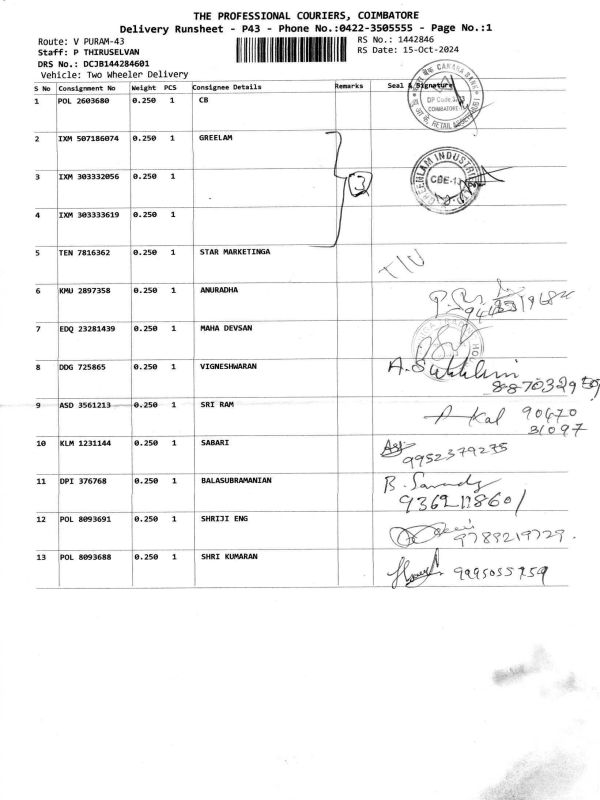 THE PROFESSIONAL COURIERS, COIMBATORE
Delivery Runsheet - P43 - Phone No.:0422-3505555 - Page No.:1
Route: V PURAM-43
RS No.: 1442846
Staff: P THIRUSELVAN
RS Date: 15-Oct-2024
DRS No.: DCJB144284601
Vehicle: Two Wheeler Delivery
S No Consignment No Weight PCS Consignee Details Remarks Seal & Signature
1 POL 2603680 0.250 1 CB
CANARA BANK
DP Code
COIMBATORE
2 IXM 507186074 0.250 1 GREELAM
3 IXM 303332056 0.250 1
3
GREENLAM INDUSTRIES
CBE-13
4 IXM 303333619 0.250 1
5 TEN 7816362 0.250 1 STAR MARKETINGA
6 KMU 2897358 0.250 1 ANURADHA
7 EDQ 23281439 0.250 1 MAHA DEVSAN
8 DDG 725865 0.250 1 VIGNESHWARAN
9 ASD 3561213 0.250 1 SRI RAM
A Kal 90470
31097
10 KLM 1231144 0.250 1 SABARI
9952379275
11 DPI 376768 0.250 1 BALASUBRAMANIAN
12 POL 8093691 0.250 1 SHRIJI ENG
9789219729.
13 POL 8093688 0.250 1 SHRI KUMARAN
9995055759